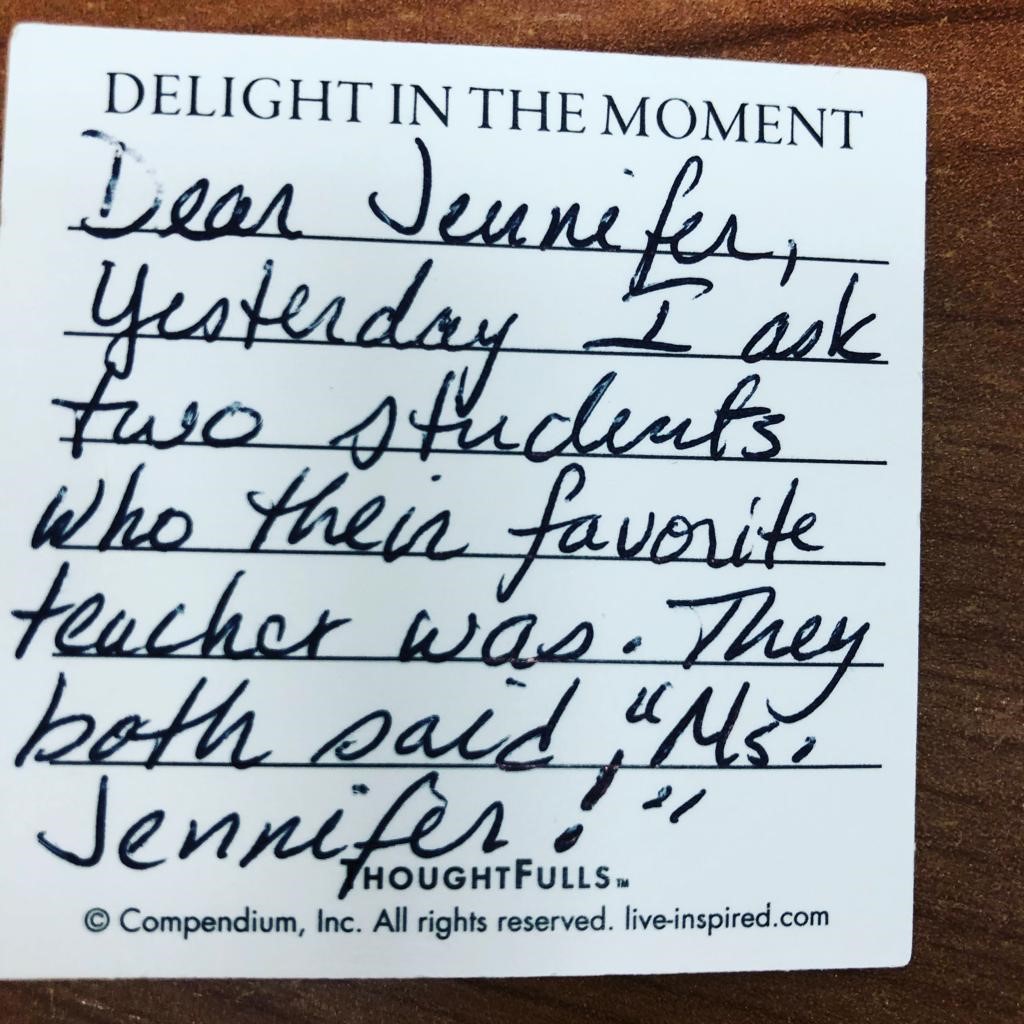 DELIGHT IN THE MOMENT
Dear Jennifer,
Yesterday I ask
two students
who their favorite
teacher was. They
both said, "Ms.
Jennifer!"
THOUGHTFULLS™
© Compendium, Inc. All rights reserved. live-inspired.com